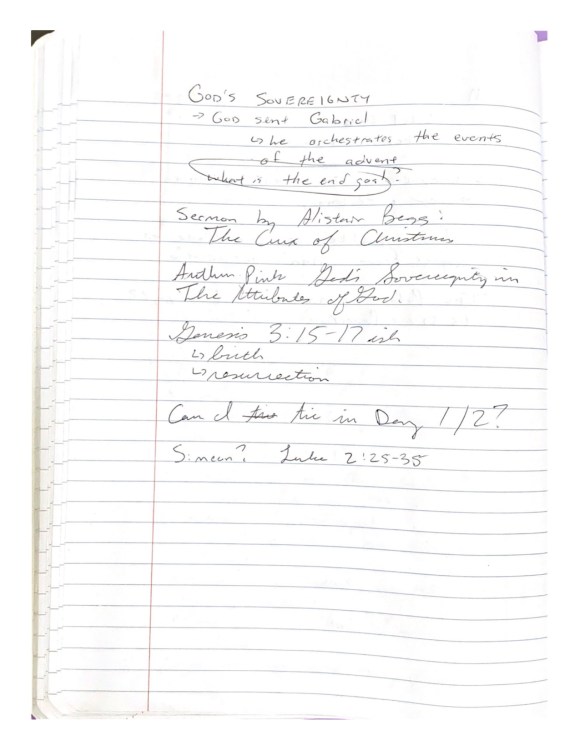 GOD'S SOVEREIGNTY
→ GOD sent Gabriel
↳ he orchestrates the events
of the advent
what is the end goal?
Sermon by Alistair Begg:
The Crux of Christmas
Arthur Pink God's Sovereignty in
The Attributes of God.
Genesis 3:15-17 ish
↳ birth
↳ resurrection
Can I tie in Day 1/2?
Simeon? Luke 2:25-35